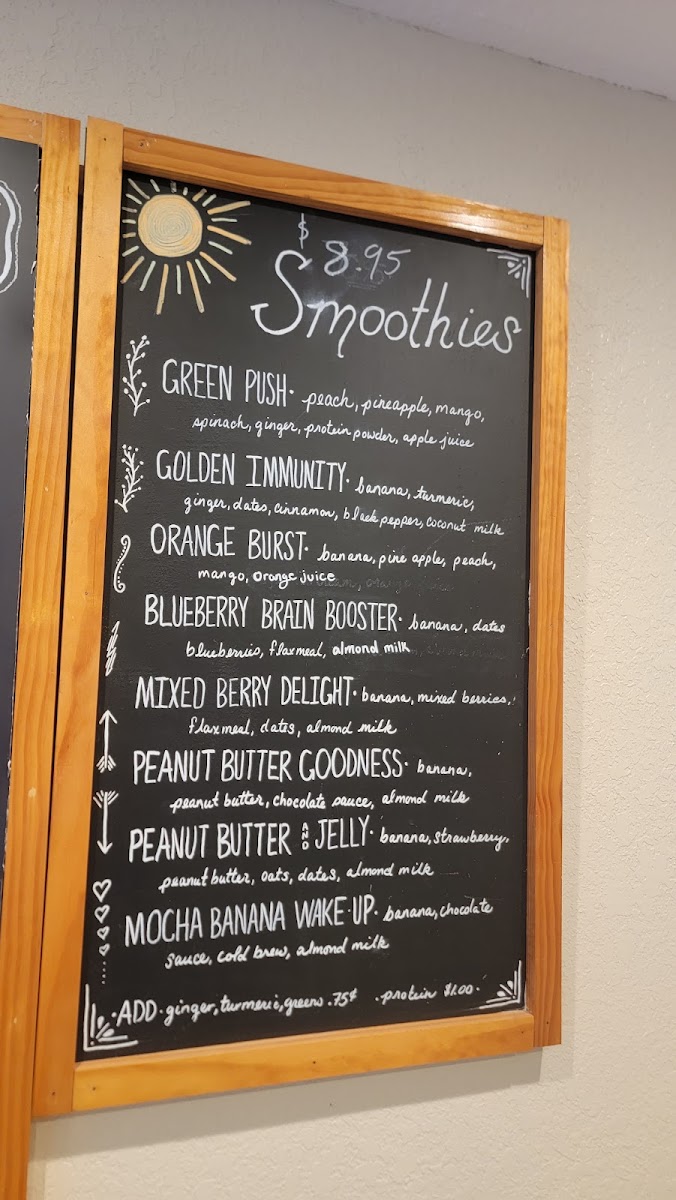 $ 8.95
Smoothies
GREEN PUSH· peach, pineapple, mango,
spinach, ginger, protein powder, apple juice
GOLDEN IMMUNITY· banana, turmeric,
ginger, dates, cinnamon, black pepper, coconut milk
ORANGE BURST· banana, pine apple, peach,
mango, orange juice
BLUEBERRY BRAIN BOOSTER· banana, dates
blueberries, flaxmeal, almond milk
MIXED BERRY DELIGHT· banana, mixed berries,
flaxmeal, dates, almond milk
PEANUT BUTTER GOODNESS· banana,
peanut butter, chocolate sauce, almond milk
PEANUT BUTTER AND JELLY· banana, strawberry,
peanut butter, oats, dates, almond milk
MOCHA BANANA WAKE·UP· banana, chocolate
sauce, cold brew, almond milk
·ADD· ginger, turmeric, greens .75¢ ·protein $1.00·